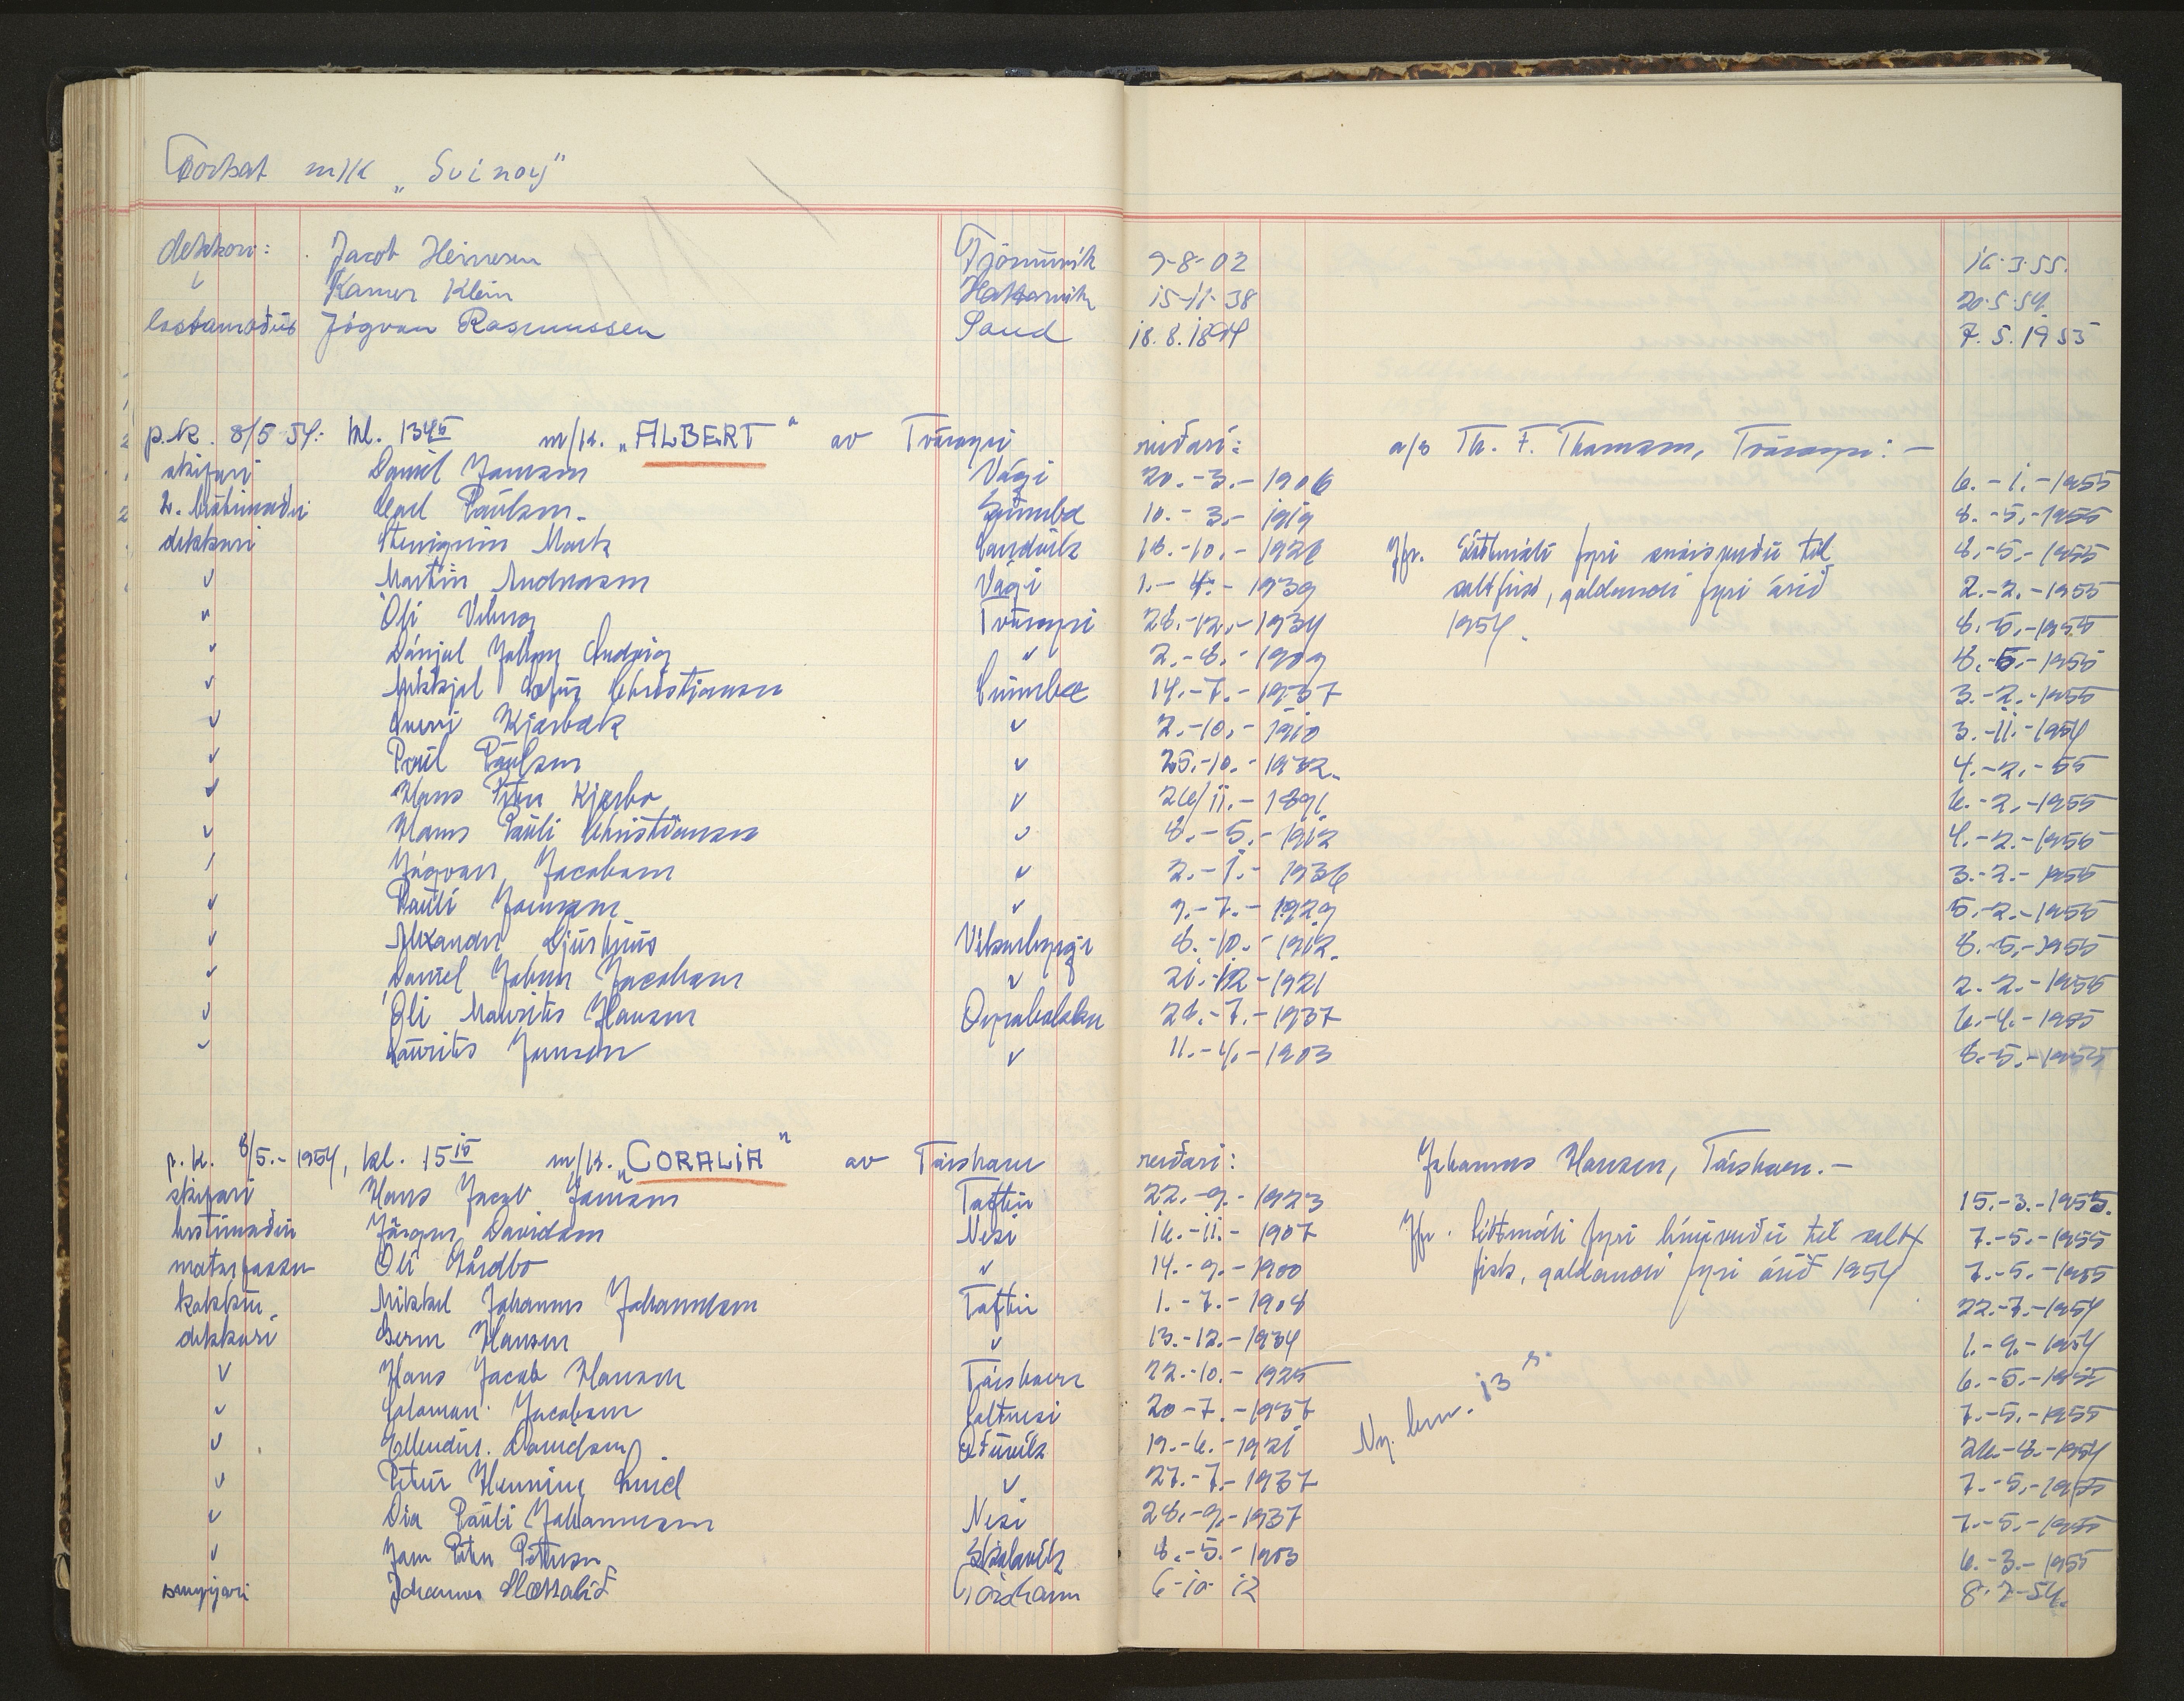 Torhat m/k „Svinoy"
dekkari: Jacob Heinesen Tjørnuvík 9-8-02 16.3.55.
" Kamer Klein Haldarsvík 15-11-38 20.5.54.
lastamaður Jógvan Rasmussen Sand 18.8.1894 7.5.1955
p.k. 8/5 54: kl. 1345 m/k. „ALBERT" av Tvøroyri reiðari: a/s Th. F. Thomsen, Tvøroyri: —
skipari Daniel Jensen Vági 20.-3.-1906 6.-1.-1955
2. bestimaður Carl Poulsen Sumba 10.-3.-1919 8.-5.-1955
dekkari Steingrím Sandvík 18.-10.-1926 Jfr. Sáttmáli fyri snørisveiðu til 8.-5.-1955
" Martin Andreasen Vági 1.-4.-1939 saltfisk, galdandi fyri árið 2.-2.-1955
" Óli Tvøroyri 28.-12.-1934 1954. 8.-5.-1955
" Dánjal Johan Ludvig " 2.-8.-1909 8.-5.-1955
" Mikkjal Christiansen Sumba 14.-7.-1937 3.-2.-1955
" Kjærbæk " 2.-10.-1910 3.-11.-1954
" Poul Poulsen " 25.-10.-1932. 4.-2.-55
" Hans Peter Kjærbo " 26/11.-1891. 6.-2.-1955
" Hans Pauli Christiansen " 8.-5.-1912 4.-2.-1955
" Jógvan Jacobsen " 2.-1.-1936 3.-2.-1955
" Pauli Joensen " 9.-7.-1929 5.-2.-1955
" Alexandur Ljúshús Vikarbyrgi 8.-10.-1912. 8.-5.-1955
" Daniel Johan Jacobsen " 21.-12-1921 2.-2.-1955
" Óli Mauritz Hansen Oyrabakka 28.-7.-1937 6.-4.-1955
" Lauritz Jensen " 11.-4.-1903 8.-5.-1955
p.k. 8/5.-1954, kl. 1510 m/k. „CORALIA" av Tórshavn reiðari: Johannes Hansen, Tórshavn.—
skipari Hans Jacob Joensen Toftir 22.-9.-1923 15.-3.-1955.
bestimaður Jørgen Davidsen Nesi 16.-11.-1907 Jfr. Sáttmáli fyri línuveiðu til salt- 7.-5.-1955
Óli Gardbo " 14.-9.-1900 fisk, galdandi fyri árið 1954 7.-5.-1955
kokkur Mikkel Johannes Johannesen Toftir 1.-7.-1908 22.-7.-1954
dekkari Hansen " 13.-12.-1934 1.-9.-1954
" Hans Jacob Hansen Tórshavn 22.-10.-1925 6.-5.-1955
" Salomon Jacobsen Saltnesi 20-7.-1937 7.-5.-1955
" Ellendur Danielsen Æðuvík 19.-6.-1921 26.-8.-1954
" Petur Henning " 27.-7.-1937 7.-5.-1955
" Dia Pauli Johannesen Nesi 28.-9.-1937 7.-5.-1955
" Jens Peter Petersen Skálavík 8.-5.-1903 6.-3.-1955
smyrjari Johannes Slættalíð Tórshavn 6-10-12 8-7-54.